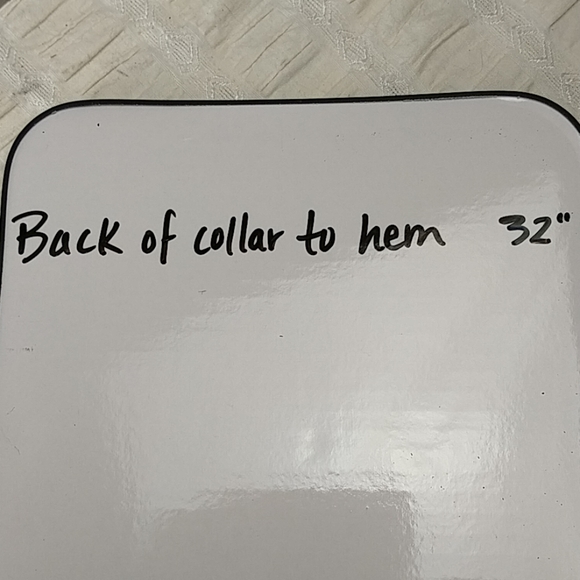 Back of collar to hem 32"